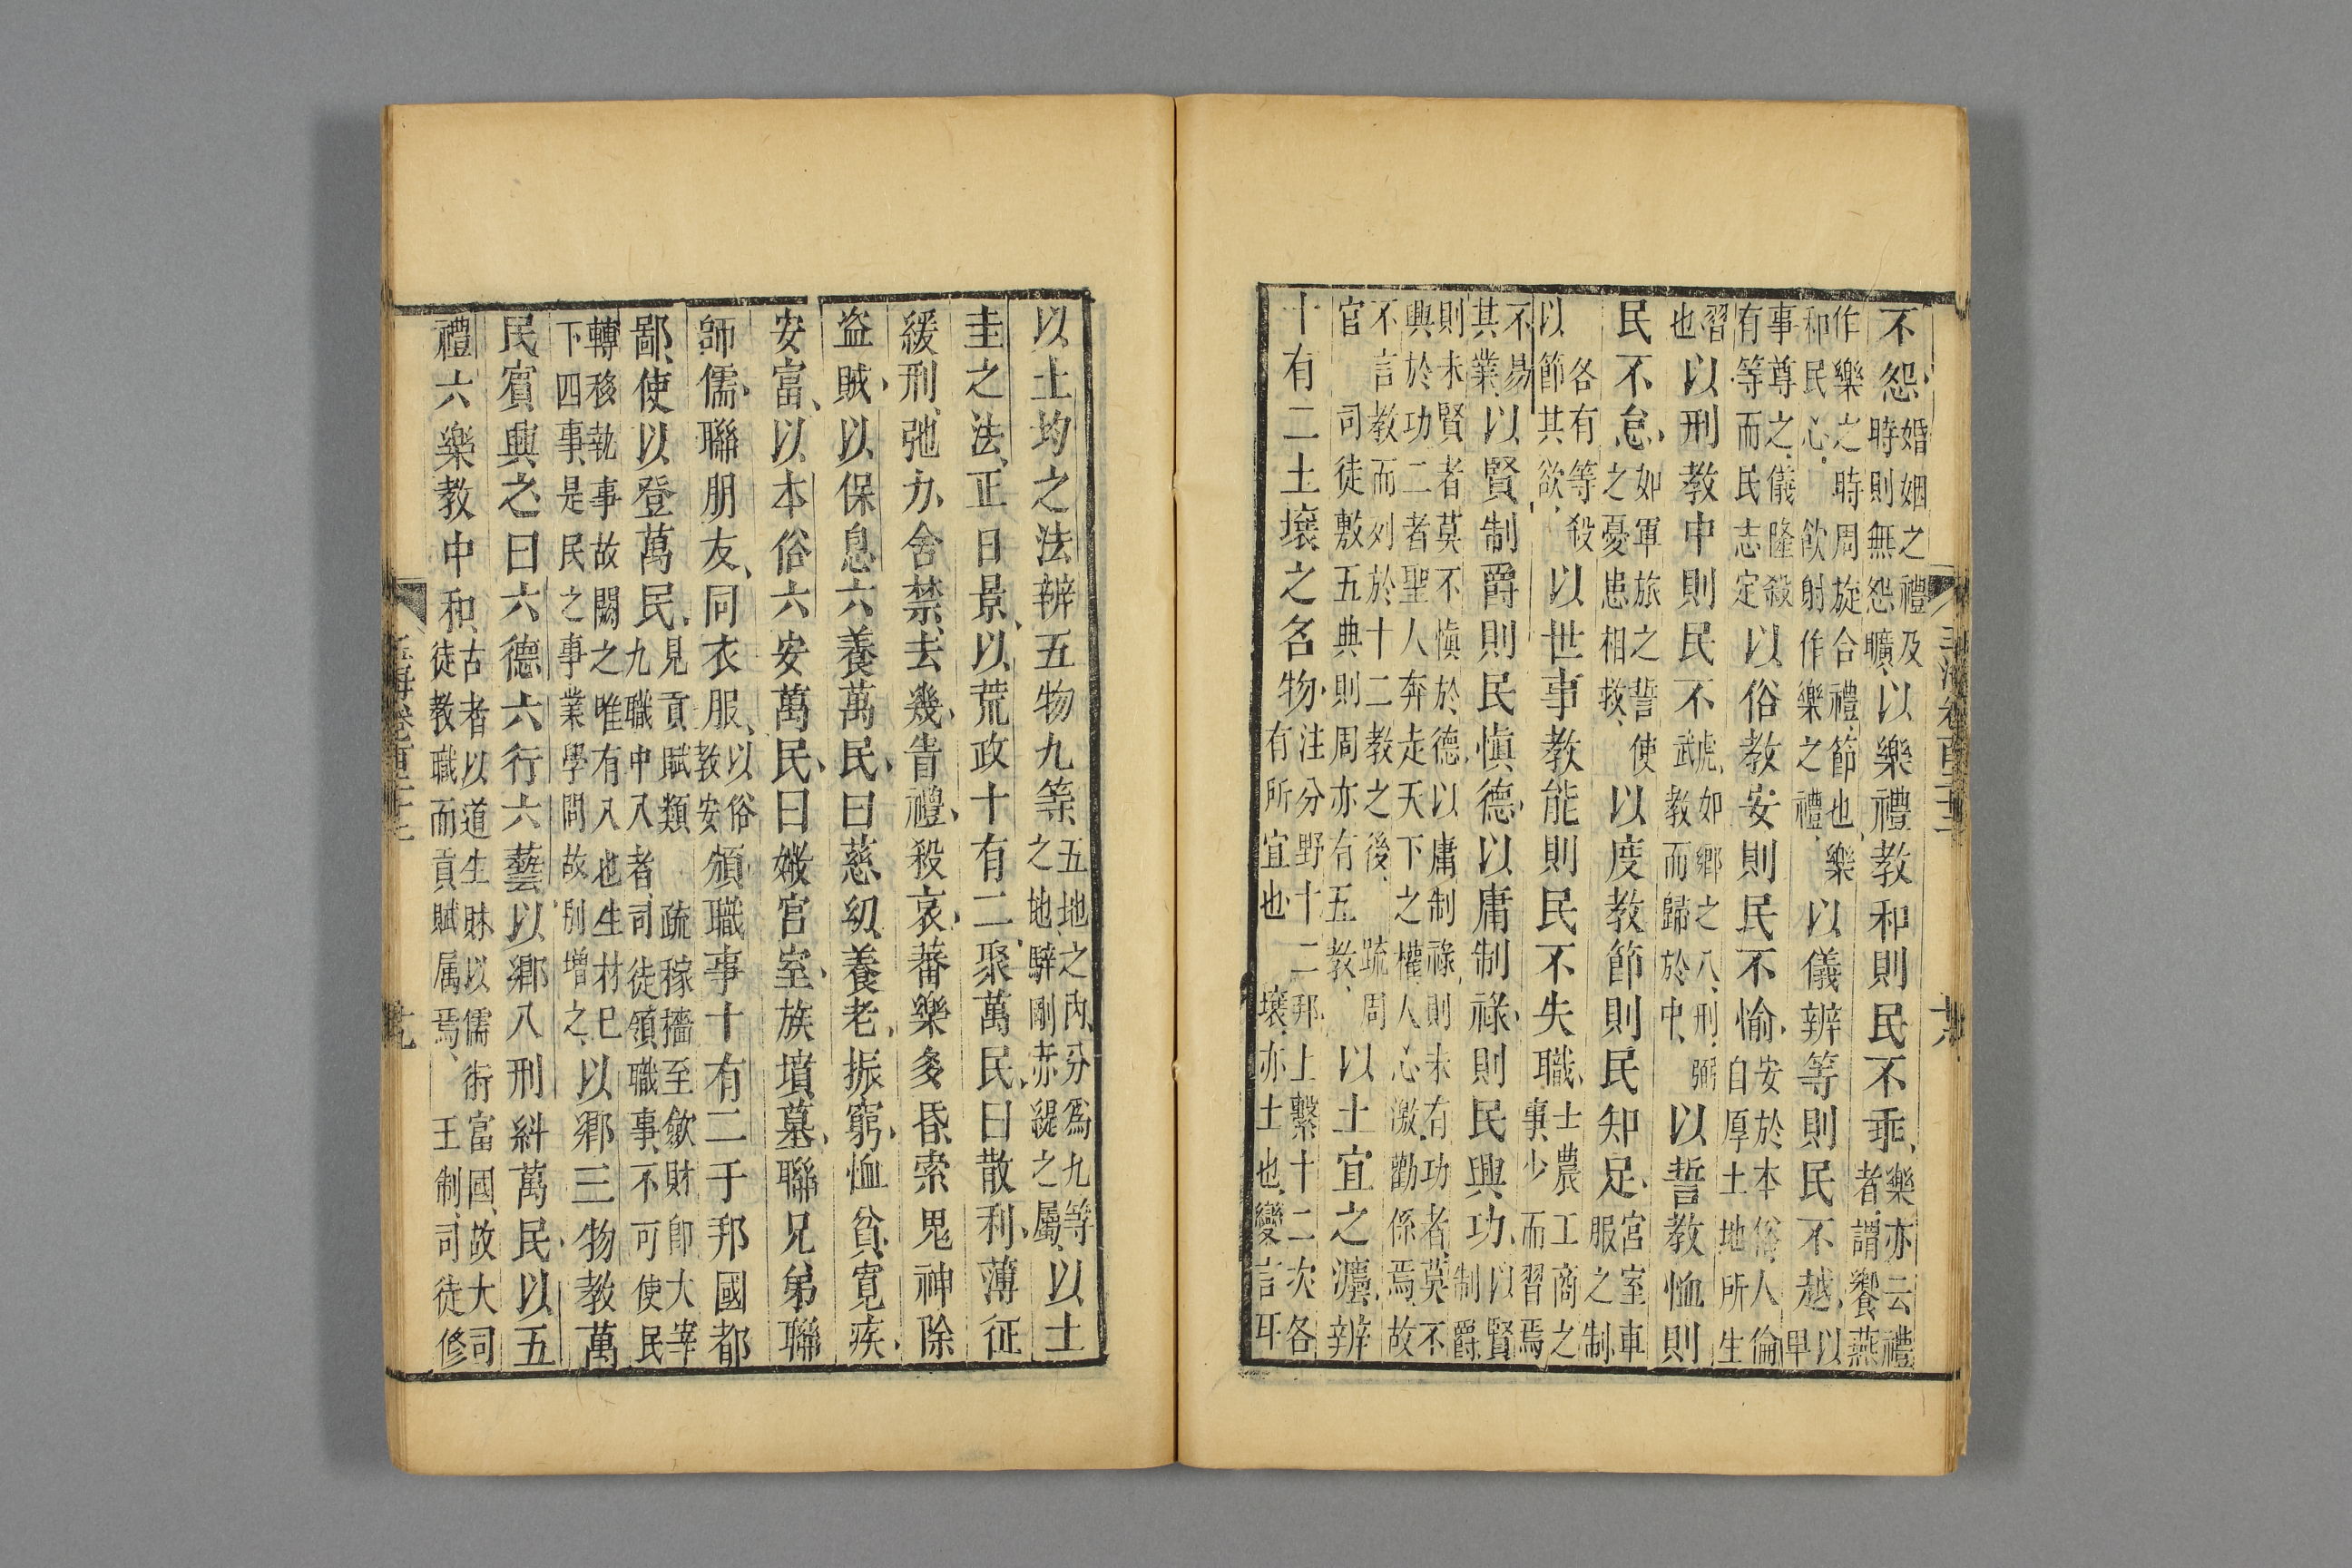 不怨婚姻之禮及時則無怨曠以樂禮教和則民不乖樂亦云禮者謂饗燕
作樂之時周旋合禮節也樂和民心飲射作樂之禮以儀辨等則民不越以卑
事尊之儀隆殺有等而民志定以俗教安則民不愉安於本俗人倫自厚土地所生
習也以刑教中則民不虣如鄉之八刑弼教而歸於中以誓教恤則
民不怠如軍旅之誓使之憂患相救以度教節則民知足宮室車服之制
各有等殺以節其欲以世事教能則民不失職士農工商之事少而習焉
不易其業以賢制爵則民慎德以庸制祿則民興功以賢制爵
則未賢者莫不慎於德以庸制祿則未有功者莫不興於功二者聖人奔走天下之權人心激勸係焉故
不言教而列於十二教之後疏周官司徒敷五典則周亦有五教以土宜之灋辨
十有二土壤之名物注分野十二邦上繫十二次各有所宜也壤亦土也變言耳
以土均之法辨五物九等五地之內分爲九等之地騂剛赤緹之屬以土
圭之法正日景以荒政十有二聚萬民曰散利薄征
緩刑弛力舍禁去幾眚禮殺哀蕃樂多昏索鬼神除
盜賊以保息六養萬民曰慈幼養老振窮恤貧寬疾
安富以本俗六安萬民曰媺宮室族墳墓聯兄弟聯
師儒聯朋友同衣服以俗教安頒職事十有二于邦國都
鄙使以登萬民見貢賦類疏稼穡至斂財即大宰九職中八者司徒領職事不可使民
轉移執事故闕之唯有八也生材已下四事是民之事業學問故別增之以鄉三物教萬
民賓興之曰六德六行六藝以鄉八刑糾萬民以五
禮六樂教中和古者以道生財以儒術富國故大司徒教職而貢賦属焉王制司徒修